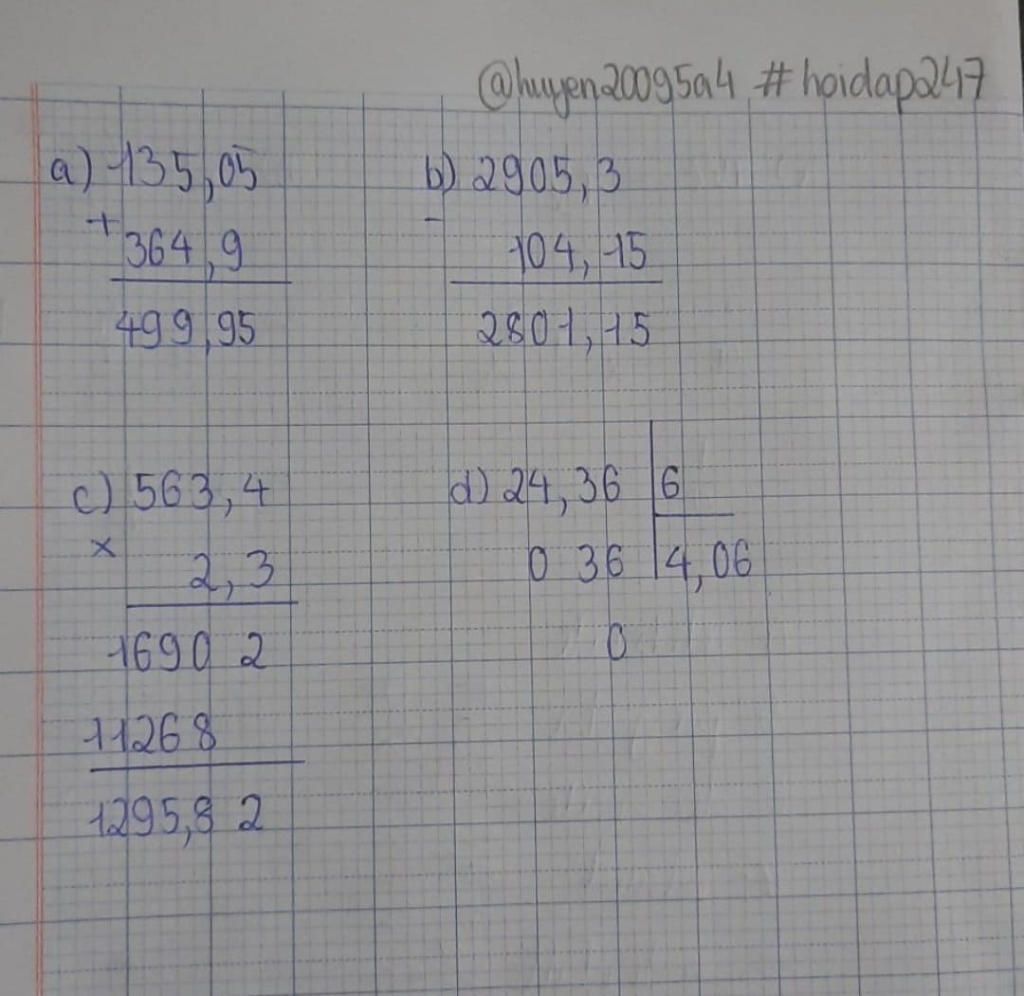 @huyen20095a4 #hoidap247
a) 135,05
+
364,9
499,95
b) 2905,3
-
104,15
2801,15
c) 563,4
×
2,3
1690 2
11268
1295,8 2
d) 24,36 6
0 36 4,06
0